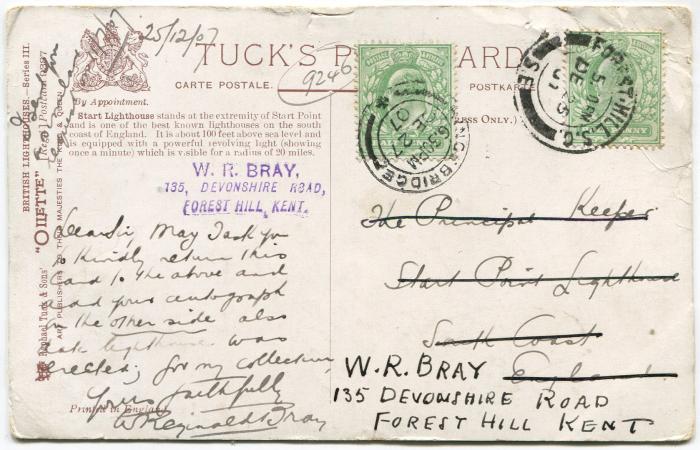 25/12/07
TUCK'S P CARD
CARTE POSTALE.
POSTKARTE
9246
By Appointment.
RESS ONLY.)
Start Lighthouse stands at the extremity of Start Point
and is one of the best known lighthouses on the south
coast of England. It is about 100 feet above sea level and
is equipped with a powerful revolving light (showing
once a minute) which is visible for a radius of 20 miles.
W. R. BRAY,
135, DEVONSHIRE ROAD,
FOREST HILL, KENT.
Dear Sir, May I ask you
to kindly return this
card to the above and
add your autograph
on the other side also
date lighthouse was
erected; for my collection,
Yours faithfully
W Reginald Bray
Printed in England
BRITISH LIGHTHOUSES.—Series III.
"OILETTE" [Regd.] Postcard
Raphael Tuck & Sons'
ART PUBLISHERS TO THEIR MAJESTIES THE KING & QUEEN
KINGSBRIDGE
6.30PM
DE 27
07
FOREST HILL S.O.
S.E.
DE
HALFPENNY
The Principal Keeper
Start Point Lighthouse
South Coast
England
W. R. BRAY
135 DEVONSHIRE ROAD
FOREST HILL KENT